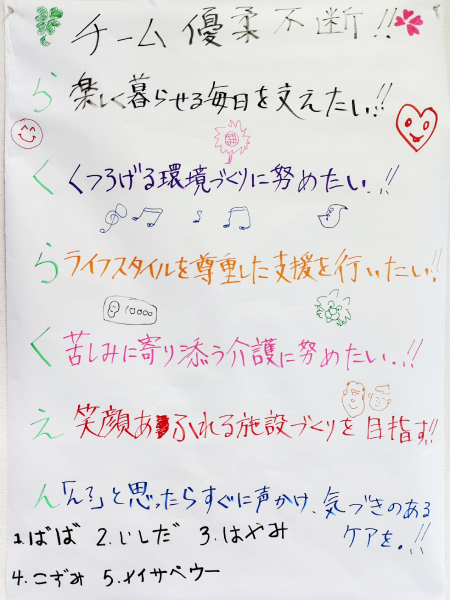 チーム 優柔不断!!
ら 楽しく暮らせる毎日を支えたい!!
く くつろげる環境づくりに努めたい!!
ら ライフスタイルを尊重した支援を行いたい!!
10000
く 苦しみに寄り添う介護に努めたい!!
え 笑顔あふれる施設づくりを目指す!!
ん 「ん?」と思ったらすぐに声かけ、気づきのある
ケアを。!!
1.ばば 2.いしだ 3.はやみ
4.こずみ 5.メイサペウー